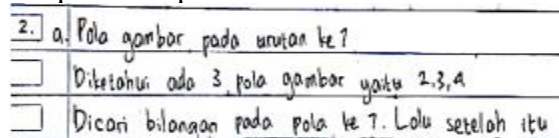 2. a. Pola gambar pada urutan ke 7
Diketahui ada 3 pola gambar yaitu 2,3,4
Dicari bilangan pada pola ke 7. Lalu setelah itu